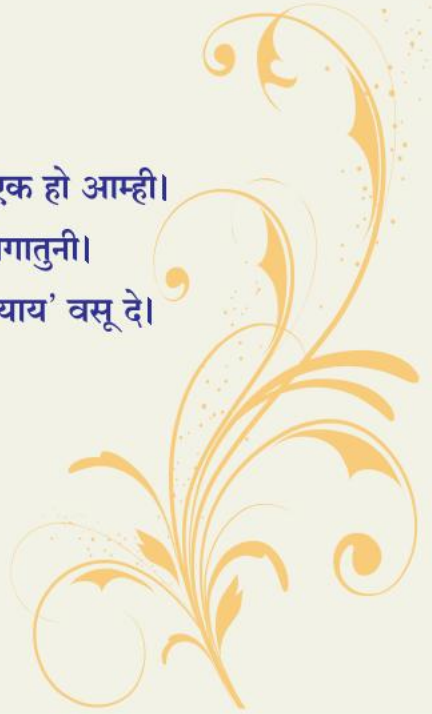 एक हो आम्ही।
गातुनी।
याय’ वसू दे।